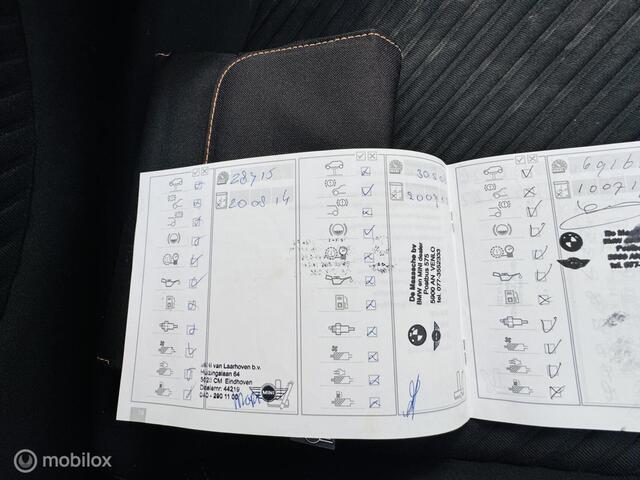 28715
200814
MINI van Laarhoven b.v.
Huizingalaan 64
5628 CM Eindhoven
Dealernr: 44219
040 - 290 11 00
MINI
De Maassche bv
BMW en MINI dealer
Postbus 575
5900 AN VENLO
tel. 077-3552333
De Maass
BMW en
Postb
5900 AN
tel. 077
mobilox